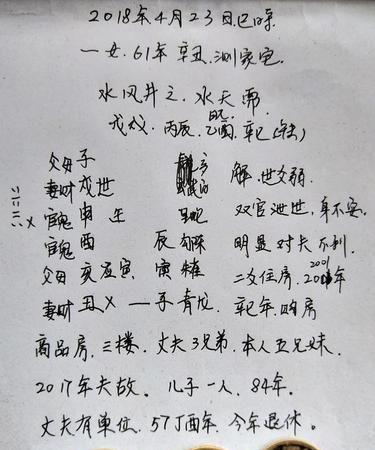 2018年4月23日巳时
一女.61年辛丑.测家宅
水风井之.水天需
戊戌.丙辰.乙酉.辛巳
父母子 解.世爻弱.
妻财戌世 双官泄世.身不安.
官鬼申 
官鬼酉 辰勾陈 明显对夫不利.
父母亥应寅 寅朱雀 二爻住房.2001年
妻财丑X一子青龙 辛巳年.购房
商品房.三楼.丈夫3兄弟.本人五兄妹.
2017年夫故.儿子一人.84年.
丈夫有单位.57丁酉年.今年退休。